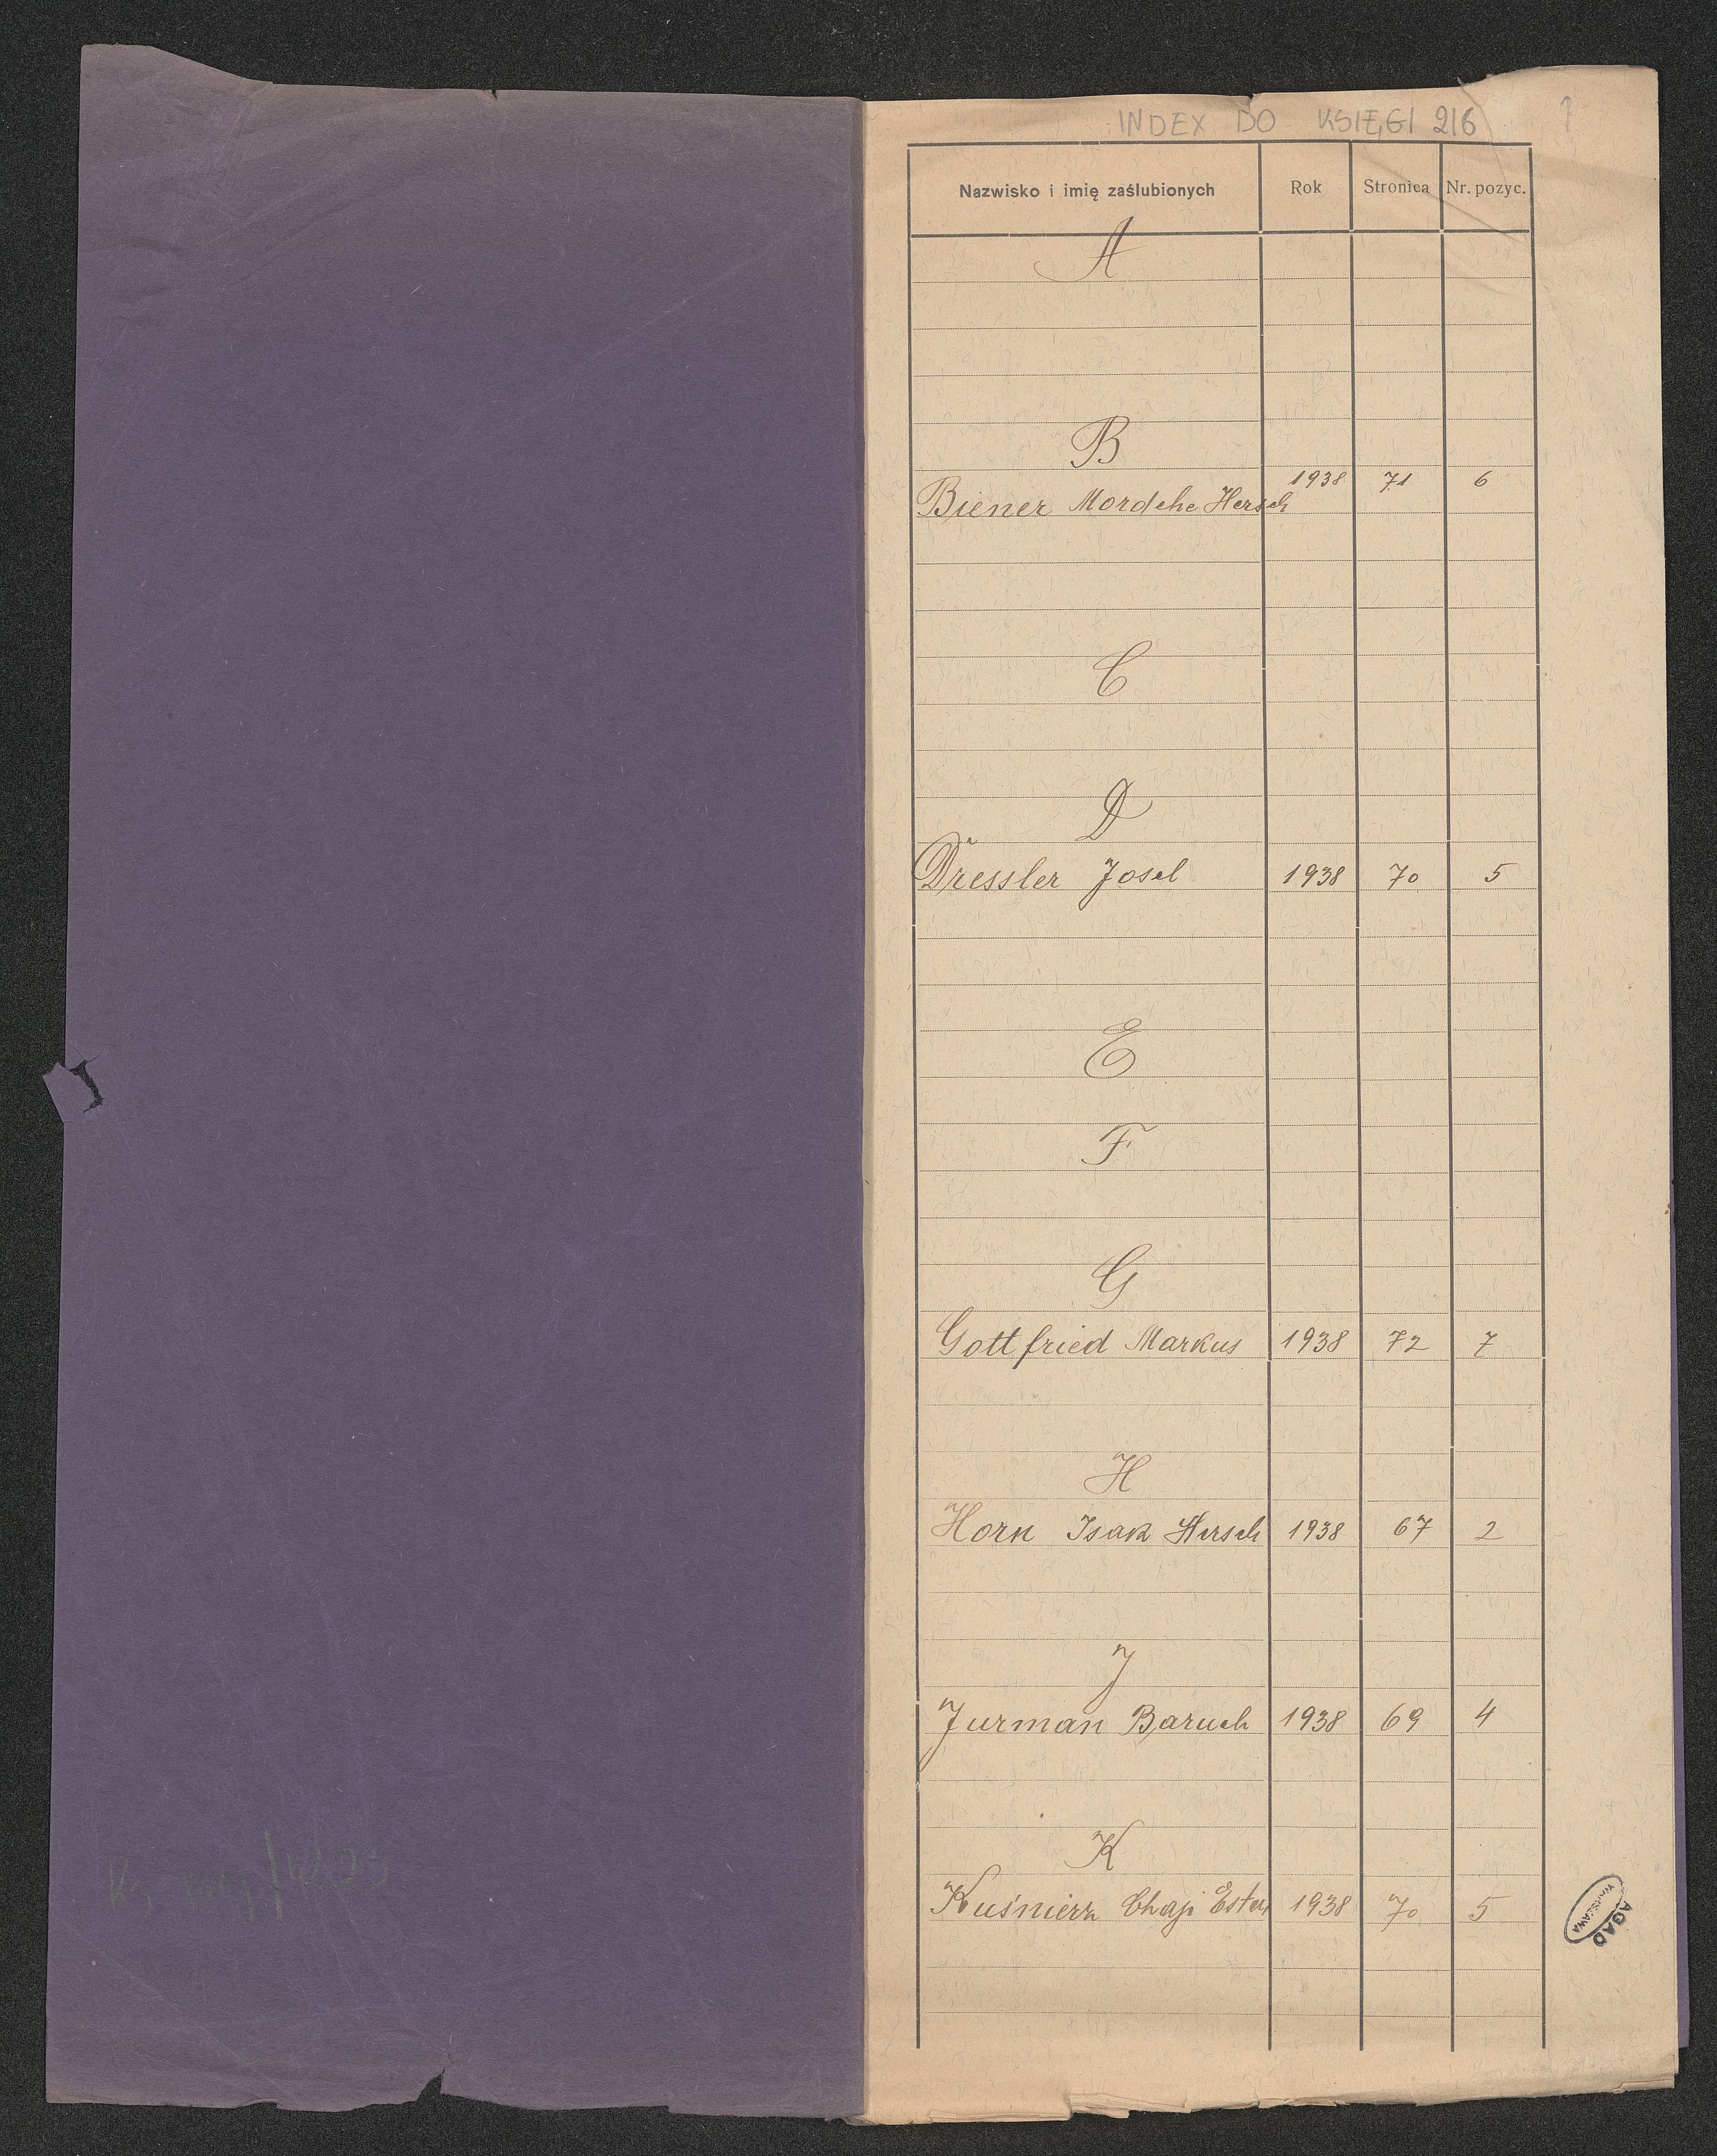 INDEX DO KSIĘGI 216 1
Nazwisko i imię zaślubionych Rok Stronica Nr. pozyc.
A
B
Biener Mordche Hersch 1938 71 6
C
D
Dressler Josel 1938 70 5
E
F
G
Gottfried Markus 1938 72 7
H
Horn Isak Hersch 1938 67 2
J
Jurman Baruch 1938 69 4
K
Kuśnierz Chaji Ester 1938 70 5
AGAD
WARSZAWA